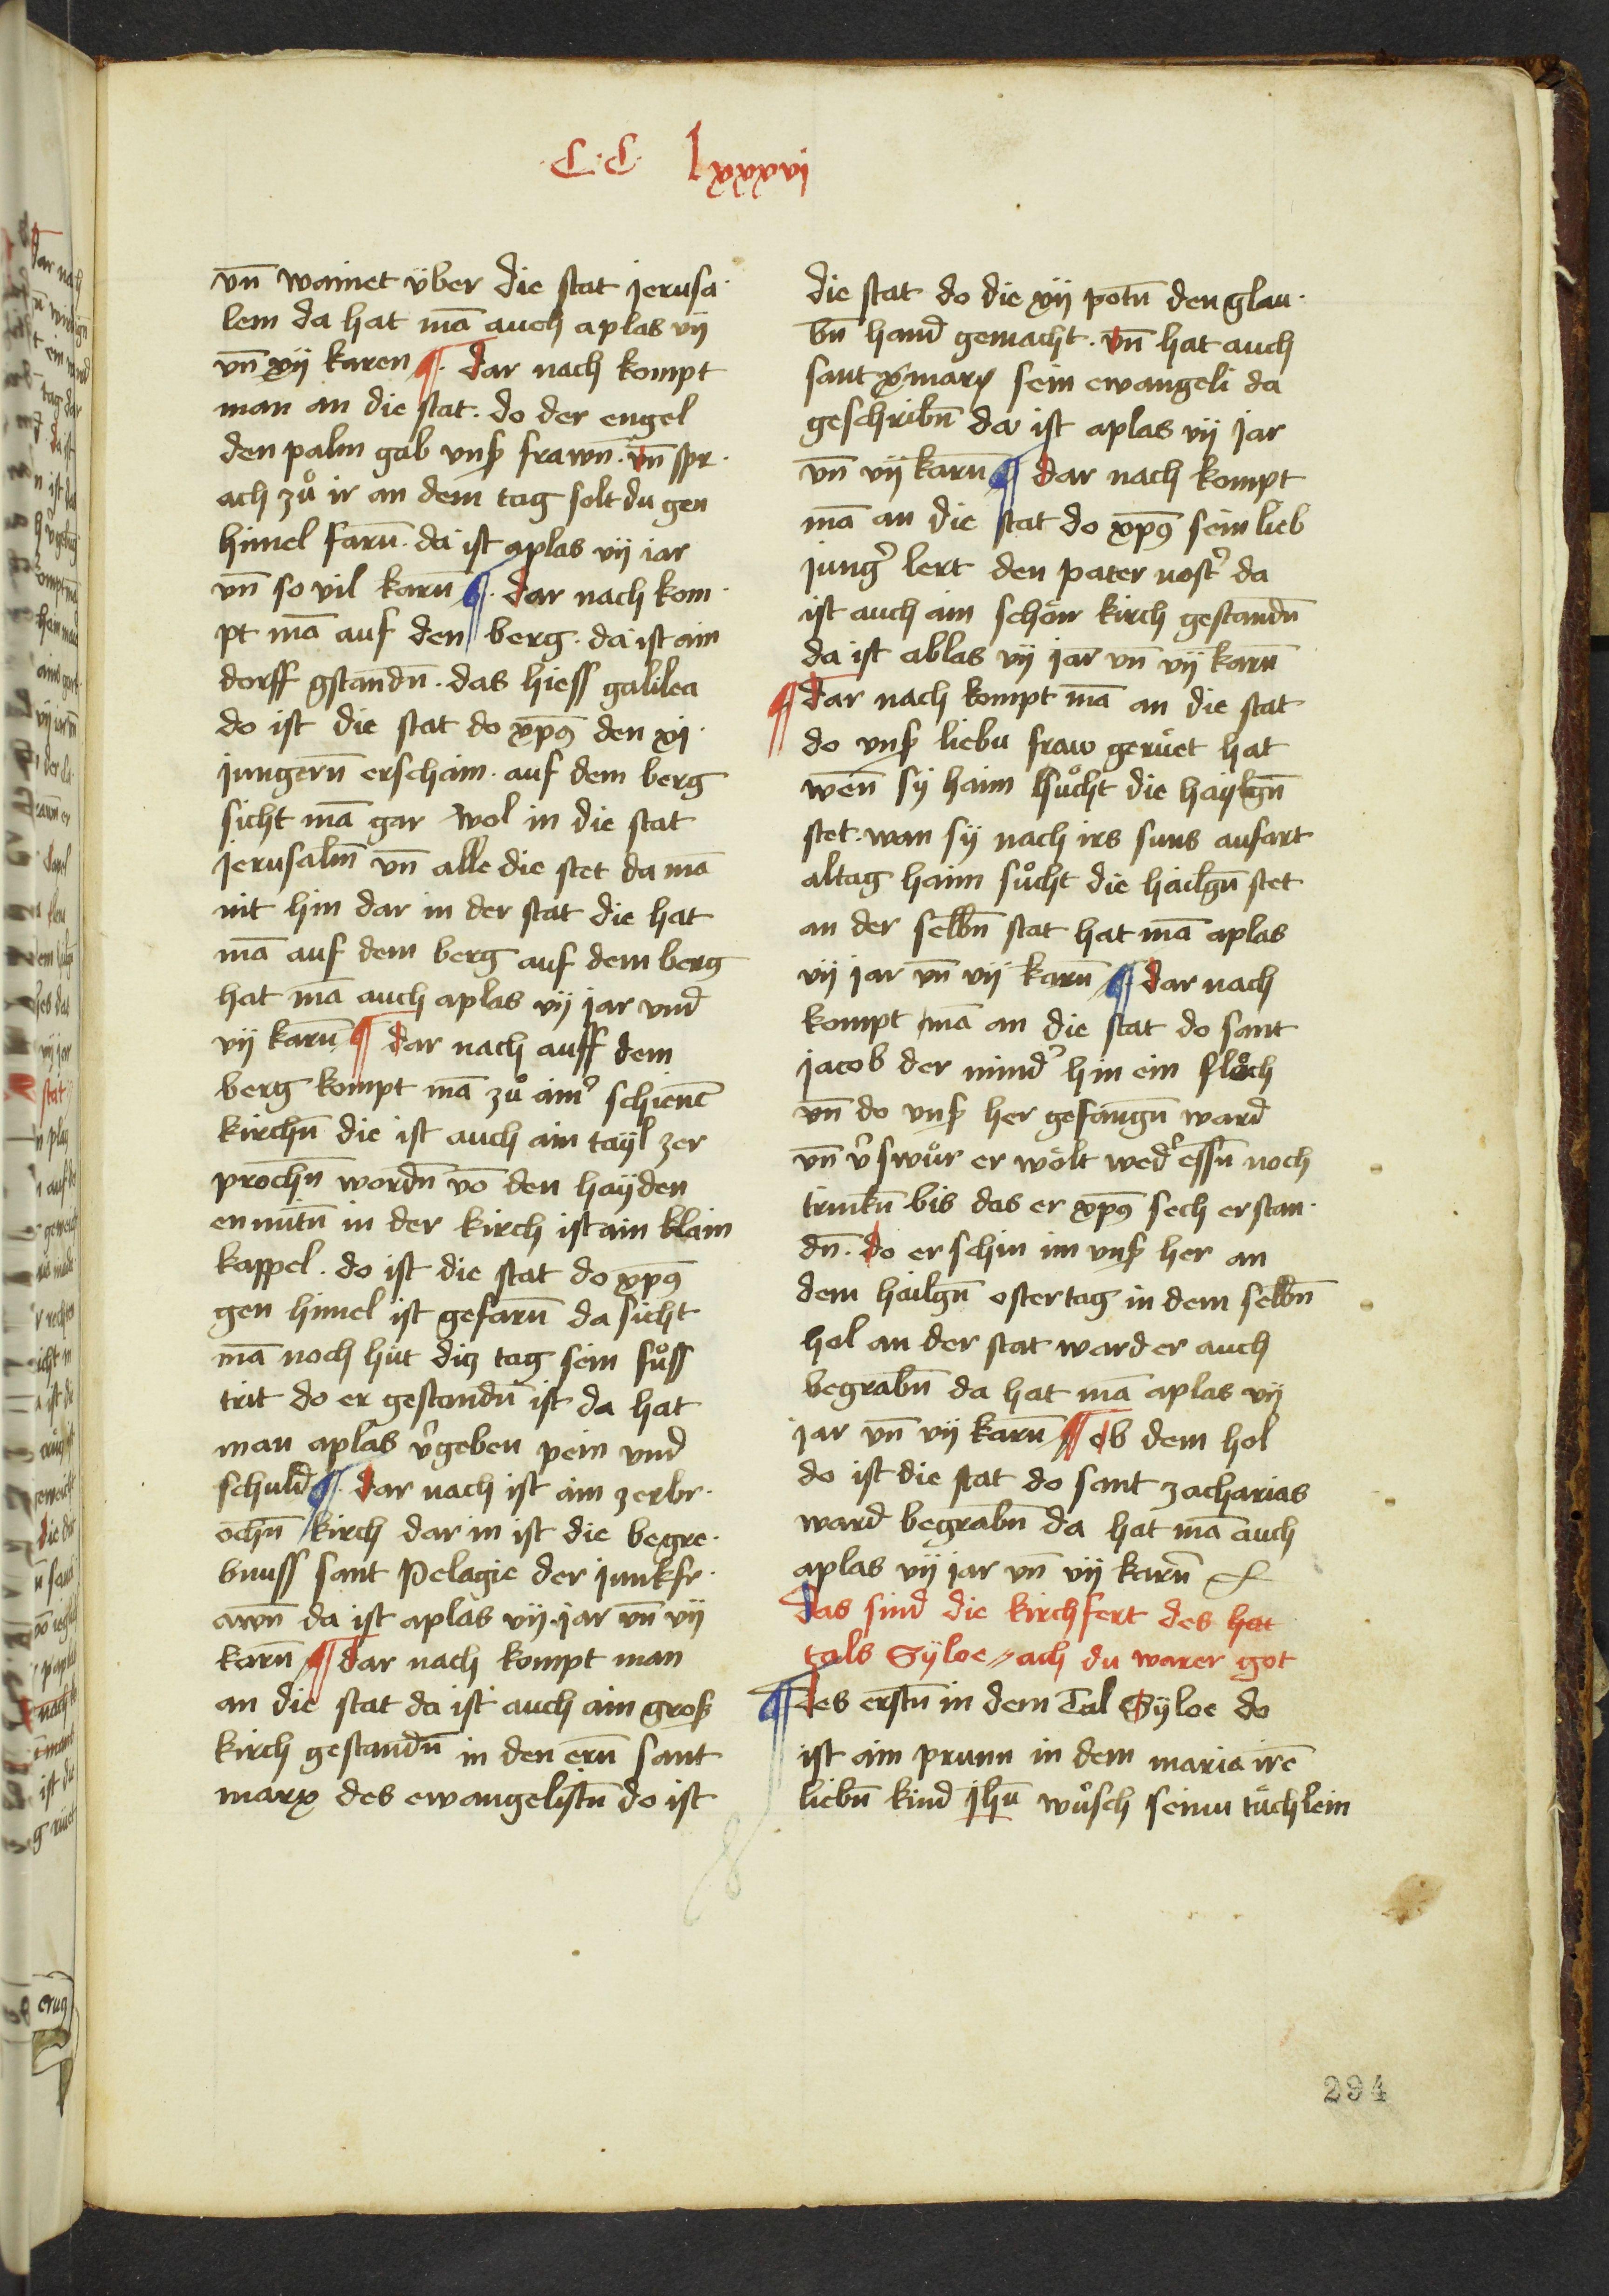 ·C·C· lxxxxvi
vn̄ wainet über die stat jerusa·
lem da hat mā auch aplas vij
vn̄ xij karen ¶ dar nach kompt
man an die stat · do der engel
den palm gab vnß frawn̄ · vn̄ spr·
ach zů ir an dem tag solt du gen
himel farn̄ · da ist aplas vij iar
vn̄ so vil karn̄ ¶ · dar nach kom·
pt mā auf den berg · da ist ain
dorff gstandn̄ · das hiess galilea
do ist die stat do xpȝ den xj·
jungern̄ erschain · auf dem berg
sicht mā gar wol in die stat
jerusalm̄ vn̄ alle die stet da mā
nit hin dar in der stat die hat
mā auf dem berg auf dem berg
hat mā auch aplas vij jar vnd
vij karn̄ ¶ dar nach auff dem
berg kompt mā zů aim̾ schienē
kirchn̄ die ist auch ain tayl zer
prochn̄ wordn̄ vō den hayden
en mitn̄ in der kirch ist ain klain
kappel · do ist die stat do xpȝ
gen himel ist gefarn̄ da sicht
mā noch hüt diz tag sein fůss
trit do er gestandn̄ ist da hat
man aplas v̾geben pein vnd
schuld ¶ · dar nach ist ain zerbr·
ochn̄ kirch dar in ist die begre·
bnuss sant Pelagie der junkfr·
awn̄ da ist aplas vij · jar vn̄ vij
karn̄ ¶ dar nach kompt man
an die stat da ist auch ain groß
kirch gestandn̄ in den ern̄ sant
marx des ewangelistn̄ do ist
die stat do die xij potn̄ den glau·
bn̄ hand gemacht · vn̄ hat auch
sant marx sein ewangeli da
geschribn̄ da ist aplas vij jar
vn̄ vij karn̄ ¶ dar nach kompt
mā an die stat do xpȝ sein lieb
jung̾ lert den pater nost̾ da
ist auch ain schön kirch gestandn̄
da ist ablas vij jar vn̄ vij karn̄
¶ dar nach kompt mā an die stat
do vnß liebu fraw gerůet hat
wen̄ sy haim hůcht die haylgn̄
stet · wan sy nach irs suns aufart
altag haim sůcht die hailgn̄ stet
an der selbn̄ stat hat mā aplas
vij jar vn̄ vij karn̄ ¶ dar nach
kompt mā an die stat do sant
jacob der mind̾ hin ein flöch
vn̄ do vnß her gefangn̄ ward
vn̄ v̾swůr er wölt wed̾ essn̄ noch
trinkn̄ bis das er xpȝ sech erstan·
dn̄ · do erschin im vnß her an
dem hailgn̄ ostertag in dem selbn̄
hol an der stat ward er auch
begrabn̄ da hat mā aplas vij
jar vn̄ vij karn̄ ¶ ob dem hol
do ist die stat do sant zacharias
ward begrabn̄ da hat mā auch
aplas vij jar vn̄ vij karn̄
das sind die kirchfert des hat
tals Syloe ach du warer got
¶ des erstn̄ in dem Tal Syloe do
ist ain prunn in dem maria irē
liebn̄ kind jhū wůsch seinu tüchlein
294